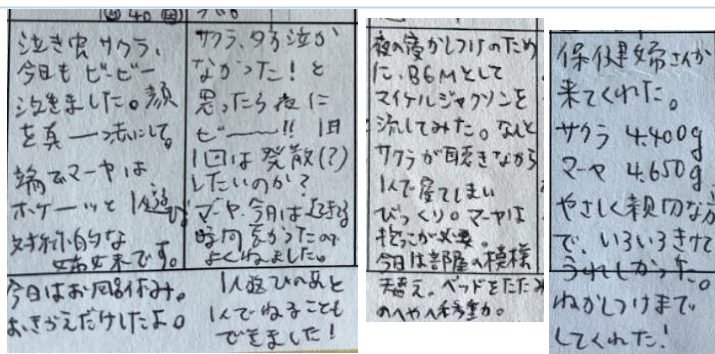 泣き虫サクラ、
今日もビービー
泣きました。顔
を真一っ赤にして。
端でマーヤは
ボケーッと1人遊び。
対称的な
姉妹です。
今日はお風呂休み。
おきがえだけしたよ。
サクラ、夕方泣か
なかった！と
思ったら夜に
ビー〜〜!! 1日
1回は発散(?)
したいのか？
マーヤ、今日は
時間長かったので
よくねました。
1人遊びのあと
1人でねることも
できました！
夜の寝かしつけのため
に、BGMとして
マイケルジャクソンを
流してみた。なんと
サクラが聴きながら
1人で寝てしまい
びっくり。マーヤは
抱っこが必要。
今日は部屋の模様
替え。ベッドをたたみ
のへやへ移動。
保健婦さんが
来てくれた。
サクラ 4.400g
マーヤ 4.650g
やさしく親切な方
で、いろいろきけて
うれしかった。
ねかしつけまで
してくれた！